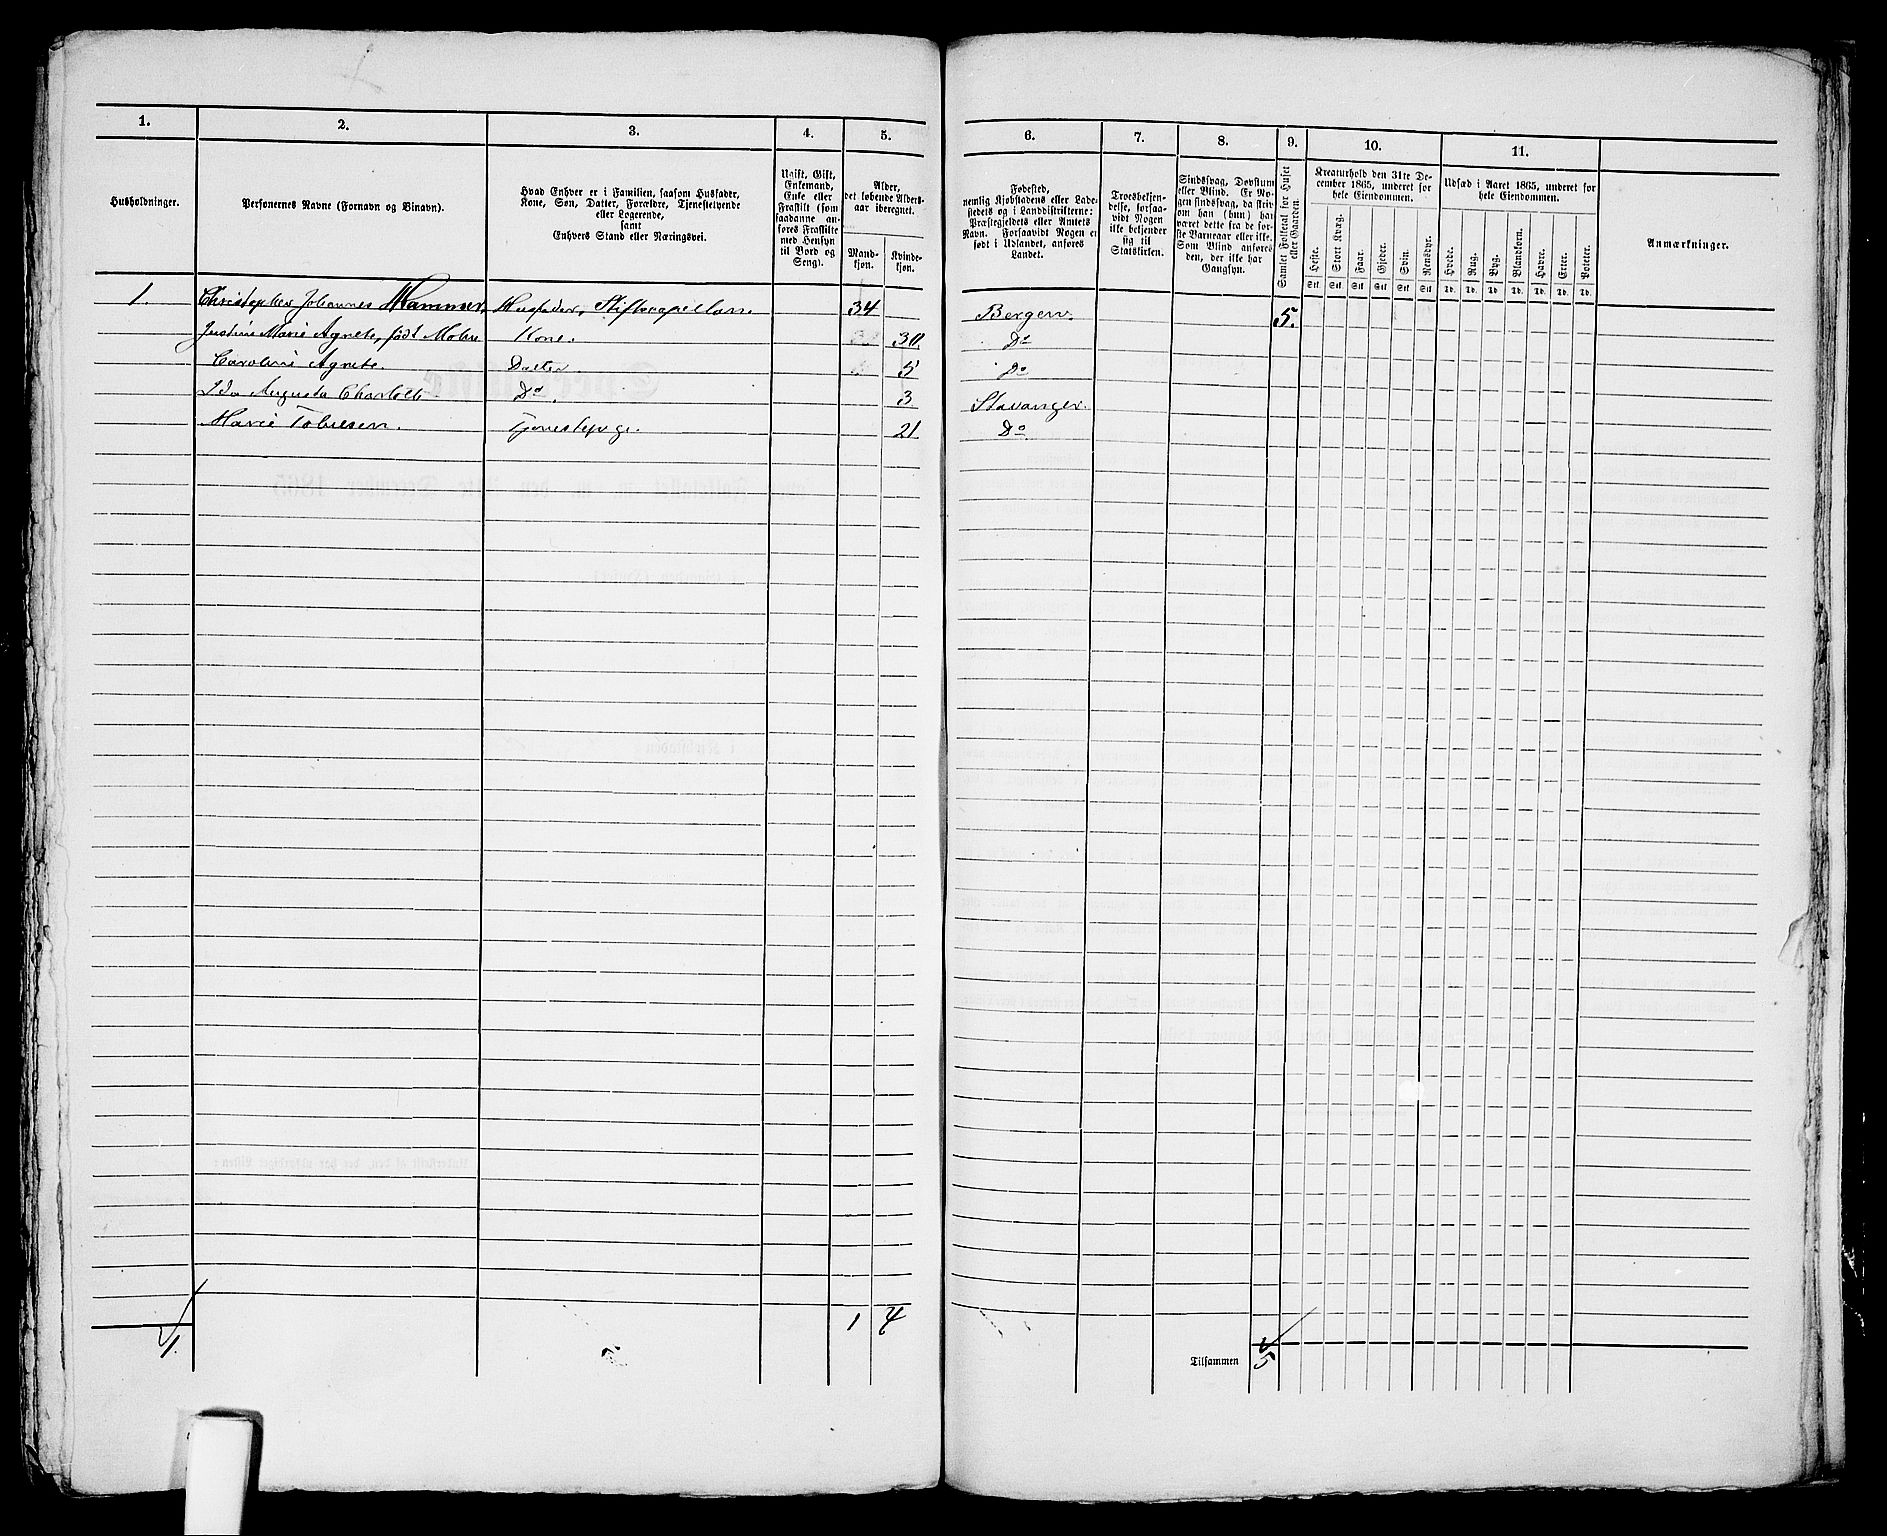 1.
2.
3.
4.
5.
Husholdninger.
Personernes Navne (Fornavn og Binavn).
Hvad Enhver er i Familien, saasom Husfader,
Kone, Søn, Datter, Forældre, Tjenestetyende
eller Logerende,
samt
Enhvers Stand eller Næringsvei.
Ugift, Gift,
Enkemand,
Enke eller
Fraskilt (som
saadanne an-
føres Fraskilte
med Hensyn
til Bord og
Seng).
Alder,
det løbende Alders-
aar iberegnet.
Mand-
kjøn.
Kvinde-
kjøn.
1. Christopher Johannes Hammer, Husfader, Stiftscapellan. 34
Justine Marie Agnete, født Mohn Kone. 30
Caroline Agnete. Datter. 5
Ida Augusta Charlotte Do. 3
Marie Tobiesen. Tjenestepige. 21
1 4
1.
6.
7.
8.
9.
10.
11.
Fødested,
nemlig Kjøbstadens eller Lade-
stedets og i Landdistrikterne:
Præstegjeldets eller Amtets
Navn. Forsaavidt Nogen er
født i Udlandet, anføres
Landet.
Troesbekjen-
delse, forsaa-
vidt Nogen
ikke bekjender
sig til
Statskirken.
Sindssvag, Døvstum
eller Blind. (Er No-
gen sindssvag, da skriv
om han (hun) har
været dette fra de før-
ste Barneaar eller ikke.
Som Blind anføres
den, der ikke har
Gangsyn.
Samlet Folketal for Huset
eller Gaarden.
Kreaturhold den 31te De-
cember 1865, underet for
hele Eiendommen.
Heste. Stort Kvæg. Faar. Gjeder. Svin. Rensdyr.
Stk. Stk. Stk. Stk. Stk. Stk.
Udsæd i Aaret 1865, underet for
hele Eiendommen.
Hvede. Rug. Byg. Blandkorn. Havre. Erter. Poteter.
Td. Td. Td. Td. Td. Td. Td.
Anmærkninger.
Bergen. 5.
Do
Do
Stavanger.
Do
Tilsammen 5